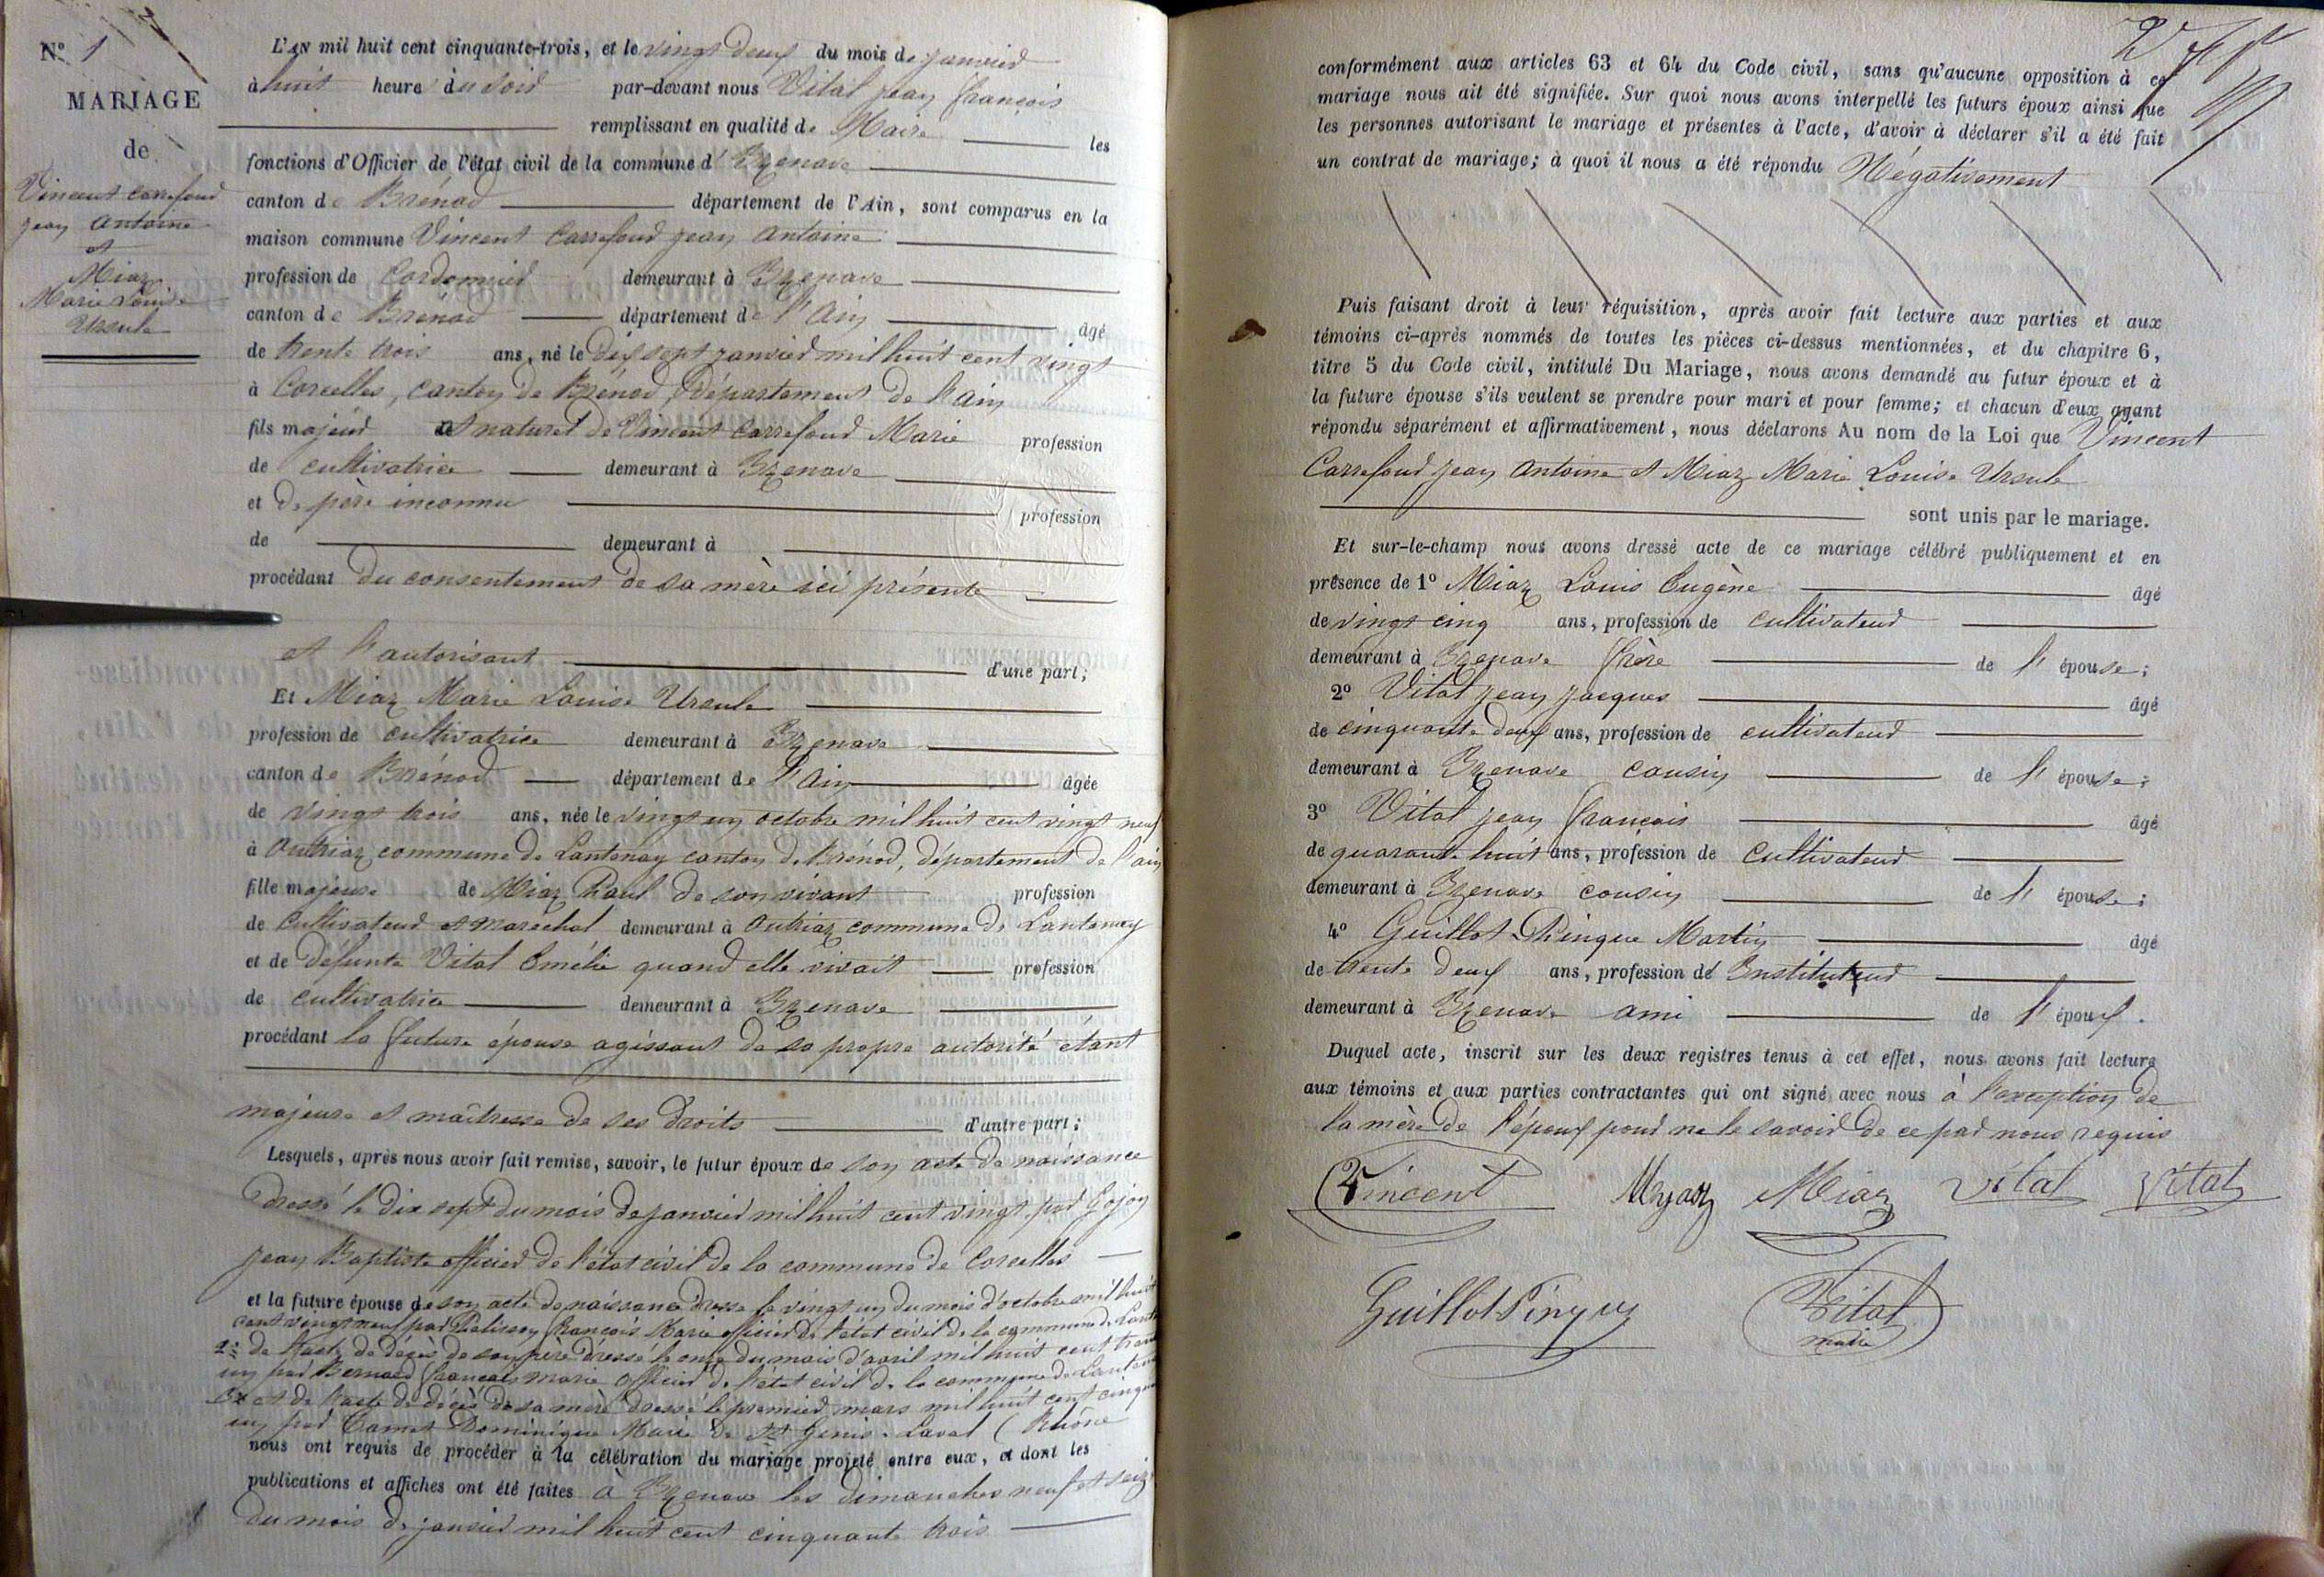 N° 1
MARIAGE
de
Vincent Carrefour
jean antoine
et
Miaz
Marie Louise
Ursule
L'AN mil huit cent cinquante-trois, et le vingt deux du mois de janvier
à huit heure du soir par-devant nous Vital jean françois
remplissant en qualité de Maire les
fonctions d'Officier de l'état civil de la commune d' Izenave
canton de Brénod département de l'Ain, sont comparus en la
maison commune Vincent Carrefour jean antoine
profession de Cordonnier demeurant à Izenave
canton de Brénod département de l'Ain âgé
de trente trois ans, né le dix sept janvier mil huit cent vingt
à Corcelles, canton de Brénod, département de l'ain
fils majeur et naturel de Vincent Carrefour Marie profession
de cultivatrice demeurant à Izenave
et de père inconnu profession
de demeurant à
procédant du consentement de sa mère ici présente
et l'autorisant d'une part;
Et Miaz Marie Louise Ursule
profession de cultivatrice demeurant à Izenave
canton de Brénod département de l'Ain âgée
de vingt trois ans, née le vingt un octobre mil huit cent vingt neuf
à Outriaz commune de Lantenay canton de Brénod, département de l'ain
fille majeure de Miaz Paul de son vivant profession
de Cultivateur et maréchal demeurant à Outriaz commune de Lantenay
et de défunte Vital Emélie quand elle vivait profession
de cultivatrice demeurant à Izenave
procédant la future épouse agissant de sa propre autorité étant
majeure et maîtresse de ses droits d'autre part;
Lesquels, après nous avoir fait remise, savoir, le futur époux de son acte de naissance
dressé le dix sept du mois de janvier mil huit cent vingt par Jojon
jean Baptiste officier de l'état civil de la commune de Corcelles
et la future épouse de son acte de naissance dressé le vingt un du mois d'octobre mil huit
cent vingt neuf par Pelisson françois Marie officier de l'état civil de la commune de Lant
2° de l'acte de décès de son père dressé le onze du mois d'avril mil huit cent tren
un par Bernard françois marie officier de l'état civil de la commune de Lanten
et de l'acte de décès de sa mère dressé le premier mars mil huit cent cinqu
un par Dominique Marie de St Genis-Laval (Rhône
nous ont requis de procéder à la célébration du mariage projeté entre eux, et dont les
publications et affiches ont été faites à Izenave les dimanches neuf et seize
du mois de janvier mil huit cent cinquante trois
conformément aux articles 63 et 64 du Code civil, sans qu'aucune opposition à ce
mariage nous ait été signifiée. Sur quoi nous avons interpellé les futurs époux ainsi que
les personnes autorisant le mariage et présentes à l'acte, d'avoir à déclarer s'il a été fait
un contrat de mariage; à quoi il nous a été répondu Négativement
Puis faisant droit à leur réquisition, après avoir fait lecture aux parties et aux
témoins ci-après nommés de toutes les pièces ci-dessus mentionnées, et du chapitre 6,
titre 5 du Code civil, intitulé Du Mariage, nous avons demandé au futur époux et à
la future épouse s'ils veulent se prendre pour mari et pour femme; et chacun d'eux ayant
répondu séparément et affirmativement, nous déclarons Au nom de la Loi que Vincent
Carrefour jean antoine et Miaz Marie Louise Ursule
sont unis par le mariage.
Et sur-le-champ nous avons dressé acte de ce mariage célébré publiquement et en
présence de 1° Miaz Louis Eugène âgé
de vingt cinq ans, profession de cultivateur
demeurant à Izenave frère de l'épouse;
2° Vital jean jacques âgé
de cinquante deux ans, profession de cultivateur
demeurant à Izenave cousin de l'épouse;
3° Vital jean françois âgé
de quarante huit ans, profession de cultivateur
demeurant à Izenave cousin de l'épouse;
4° Guillot Pingue Martin âgé
de trente deux ans, profession de Instituteur
demeurant à Izenave ami de l'époux.
Duquel acte, inscrit sur les deux registres tenus à cet effet, nous avons fait lecture
aux témoins et aux parties contractantes qui ont signé avec nous à l'exception de
la mère de l'époux pour ne le savoir de ce par nous requis
Vincent Myaz Miaz Vital Vital
Guillot Pingue Vital
maire